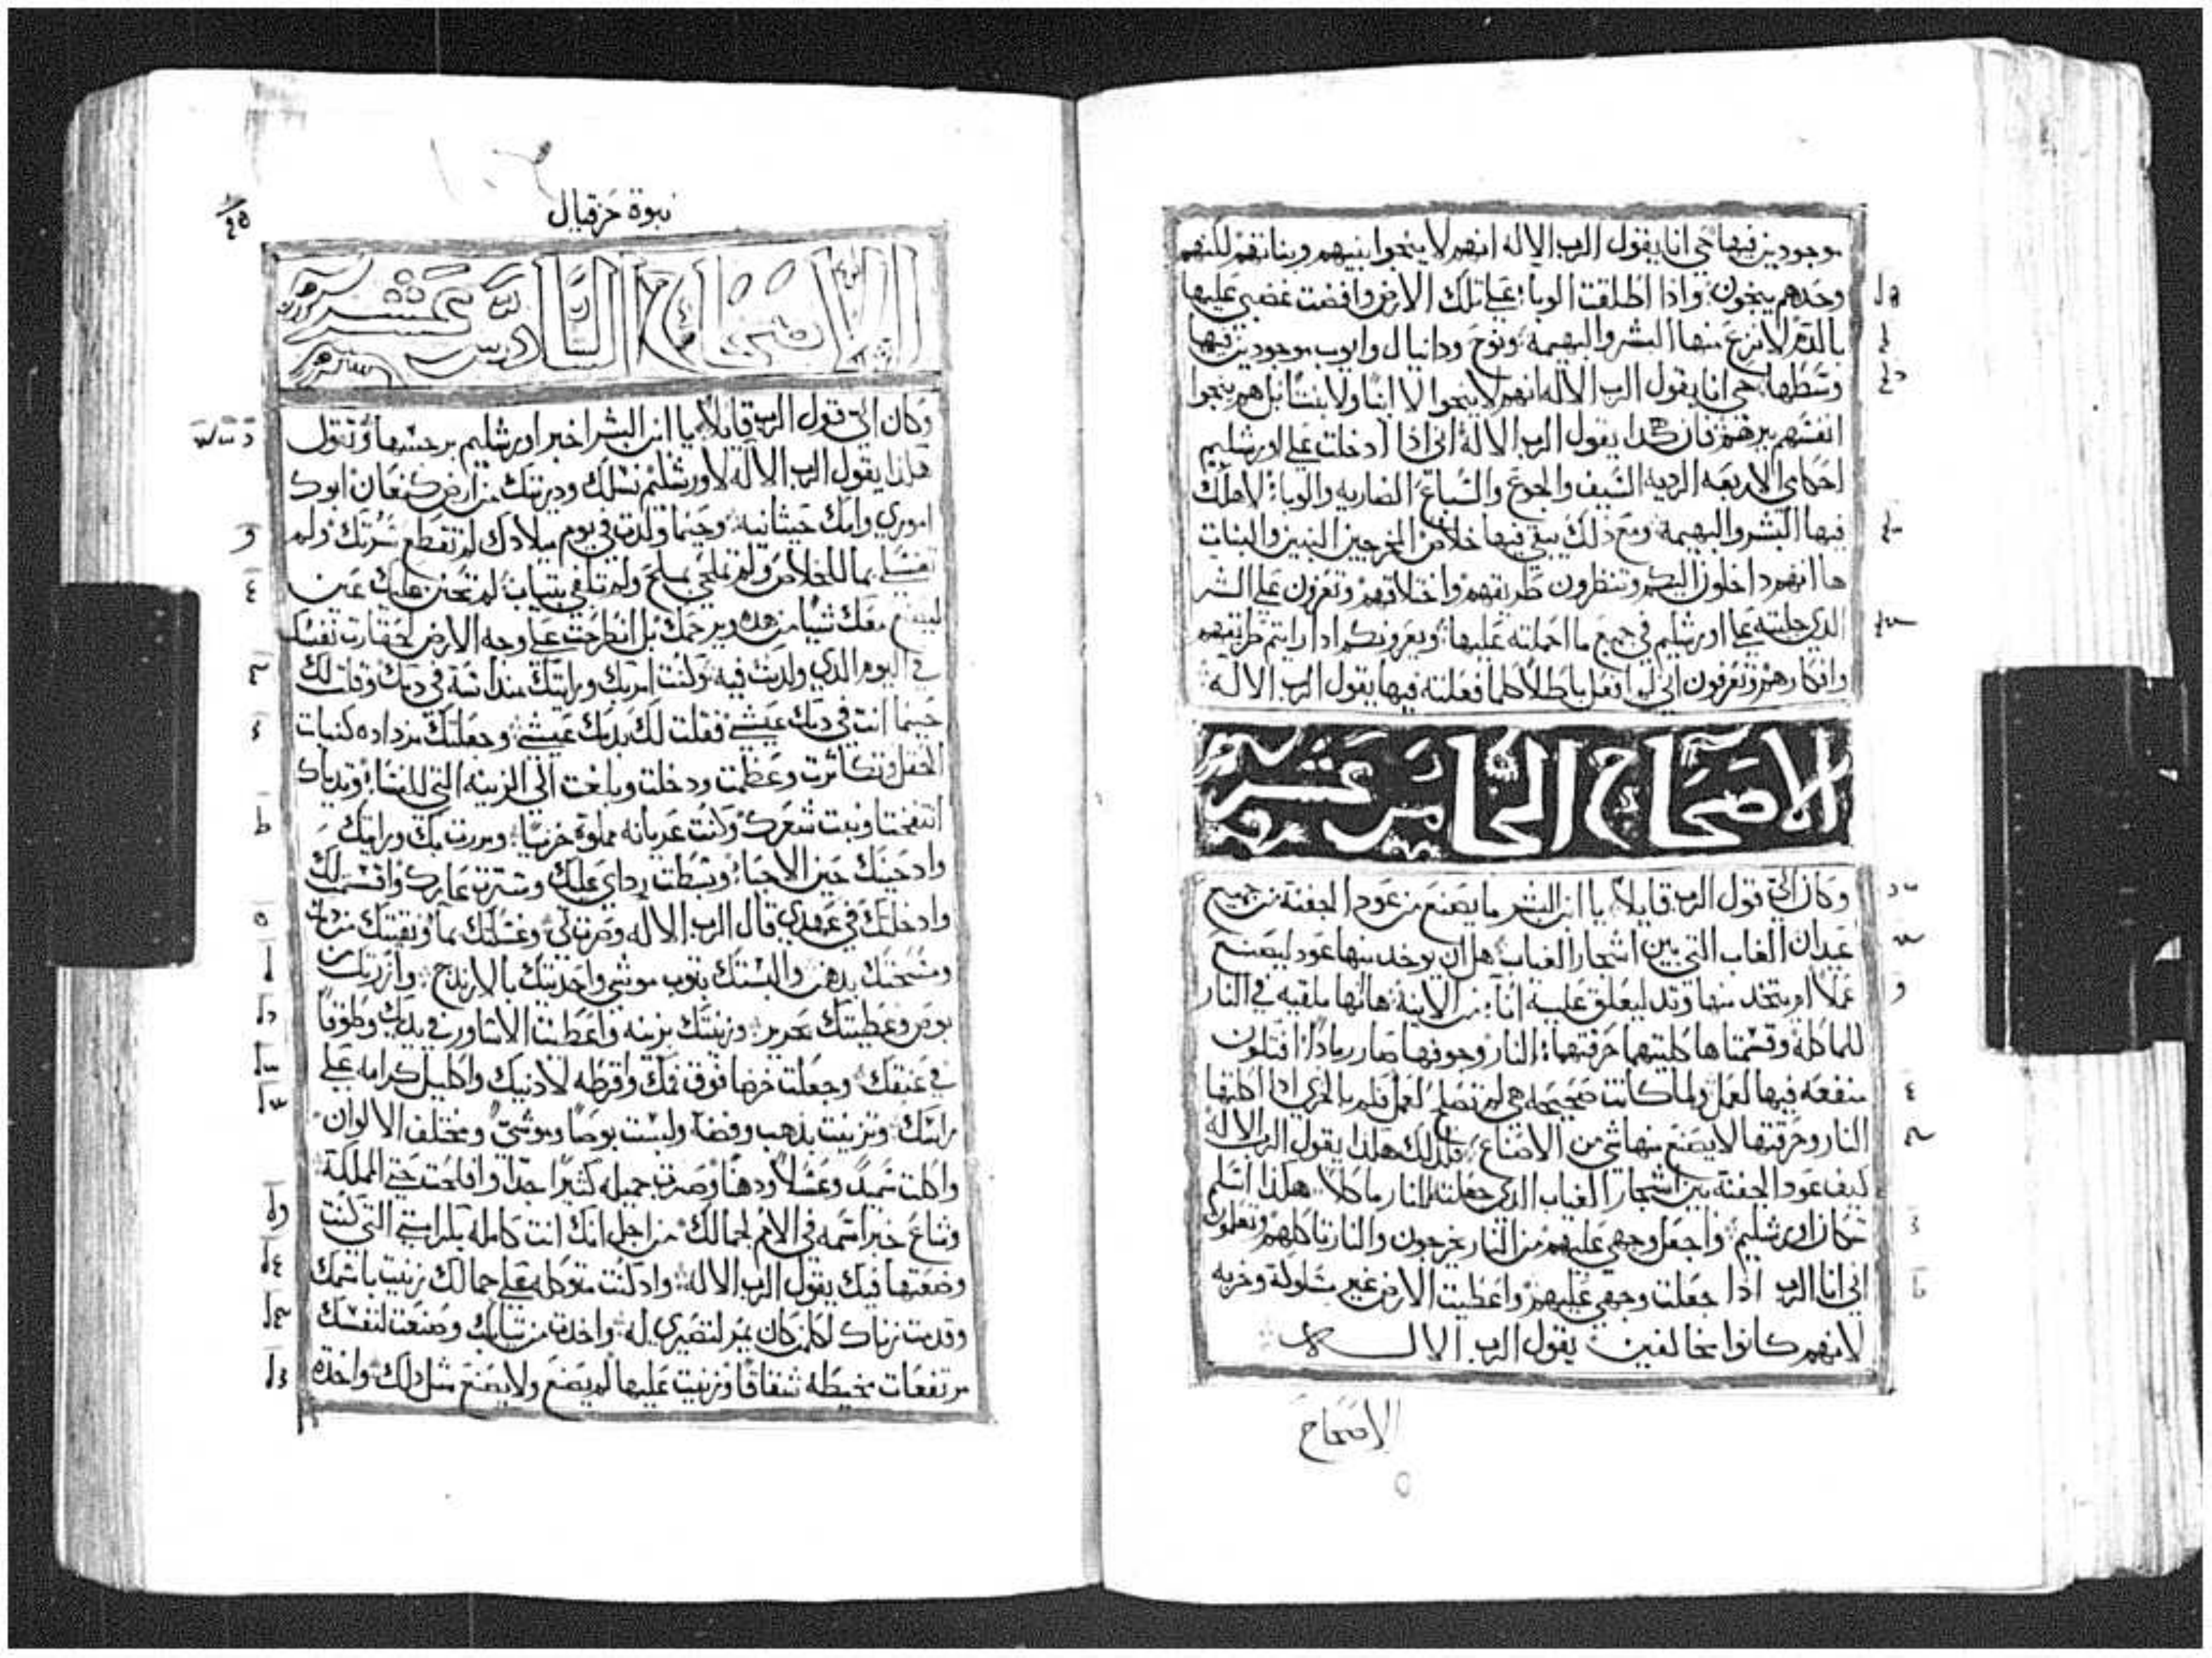 موجودين فيها حي انا يقول الرب الاله انهم لا ينجوا بنيهم وبناتهم لكنهم
وحدهم ينجون واذا اطلقت الوباء على تلك الارض وافضت غضبي عليها
بالدم لانزع منها البشر والبهيمه ونوح ودانيال وايوب موجودين فيها
وسطها حي انا يقول الرب الاله انهم لا ينجوا لا ابنا ولا بنتا بل هم ينجوا
انفسهم ببرهم فان هكذا يقول الرب الاله اني اذا ادخلت على اورشليم
احكامي الاربعه الرديه السيف والجوع والسباع الضاريه والوباء لاهلك
فيها البشر والبهيمه ومع ذلك يبقى فيها خلاص المخرجين البنين والبنات
ها انهم داخلون اليكم وتنظرون طريقهم واختلاقهم وتعزون على الشر
الذي جلبته على اورشليم في جميع ما احملته عليها ويعزونكم اذا رايتم طريقهم
وافكارهم وتعرفون اني لم افعل باطلا كلما فعلته فيها يقول الرب الاله
الاصحاح الخامس عشر
وكان الي قول الرب قايلا يا ابن البشر ما يصنع من عود الجفنة من جميع
عيدان الغاب التي بين اشجار الغياب هل ان يوخد منها عود ليصنع
عملا او يتخد منها وتد ليعلق عليه اناء من الانية هانها ملقيه في النار
للماكله وقسمتاها كلتيهما حرقتهما النار وجوفها صار رمادا افتكون
منفعه فيها لعمل ولما كانت صحيحه هي لم تصلح لعمل فلم بالحري اذا اكلتها
النار وحرقتها لا يصنع منها شي من الاصناع فلذلك هكذا يقول الرب الاله
كيف عود الجفنة بين اشجار الغياب الذي جعلته للنار ماكلا هكذا اسلم
سكان اورشليم واجعل وجهي عليهم من النار يخرجون والنار تاكلهم وتعلمون
اني انا الرب اذا جعلت وجهي عليهم واعطيت الارض غير مسلوكة وخربه
لانهم كانوا مخالفين يقول الرب الاله
الاصحاح
نبوة حزقيال
الاصحاح السادس عشر
وكان الي قول الرب قايلا يا ابن البشر اخبر اورشليم برجسها وتقول
هكذا يقول الرب الاله لاورشليم نسلك وديرتك من ارض كنعان ابوك
اموري وامك حيثانيه وحينما ولدت في يوم ميلادك لم تقطع سرتك ولم
تغسلي بما للخلاص ولم تملحي بملح ولم تلفي بتياب لم تحنن عليك عين
ليصنع معك شيا من هده ويرحمك بل انطرحت على وجه الارض لحقارت نفسك
في اليوم الدي ولدت فيه وكنت امر بك ورايتك منداسة في دمك وقلت لك
حينما انت في دمك عيشي فقلت لك بدمك عيشي وجعلتك مزداده كنبات
الحقل وتكاثرت وعظمت ودخلت وبلغت الي الزينه التي للنساء وتدياك
انتفختا ونبت شعرك وكنت عريانه مملوة خزيا ومررت بك ورايتك
واد حينك حين الاحباء وبسطت رداي عليك وسترت عارك واقسمت لك
وادخلتك في عهدي قال الرب الاله وصرت لي وغسلتك بما ونقيتك من دمك
ومسحتك بدهن والبستك بتوب موشي واحديتك بالارندج وازرتك
بوص وغطيتك بحرير وزينتك بزينه واعطيت الاساور في يديك وطوقا
في عنقك وجعلت خزما فوق فمك واقرطه لادنيك واكليل كرامه على
راسك وتزينت بذهب وفضة ولبست بوصا وموشي ومختلف الالوان
واكلت سميد وعسلا ودهنا وصرت جميله كثيرا جدا وافلحت حتى المملكة
وشاع خبر اسمه في الامم لجمالك من اجل انك انت كامله بكرامتي التي كنت
وضعتها فيك يقول الرب الاله واد كنت متوكله على جمالك زنيت باسمك
وقدمت زناك لكل من كان يمر لتصيري له واخدت من تيابك وصنعت لنفسك
مرتفعات مخيطه شقاقا وزنيت عليها لم يصنع ولا يصنع مثل دلك واخدة